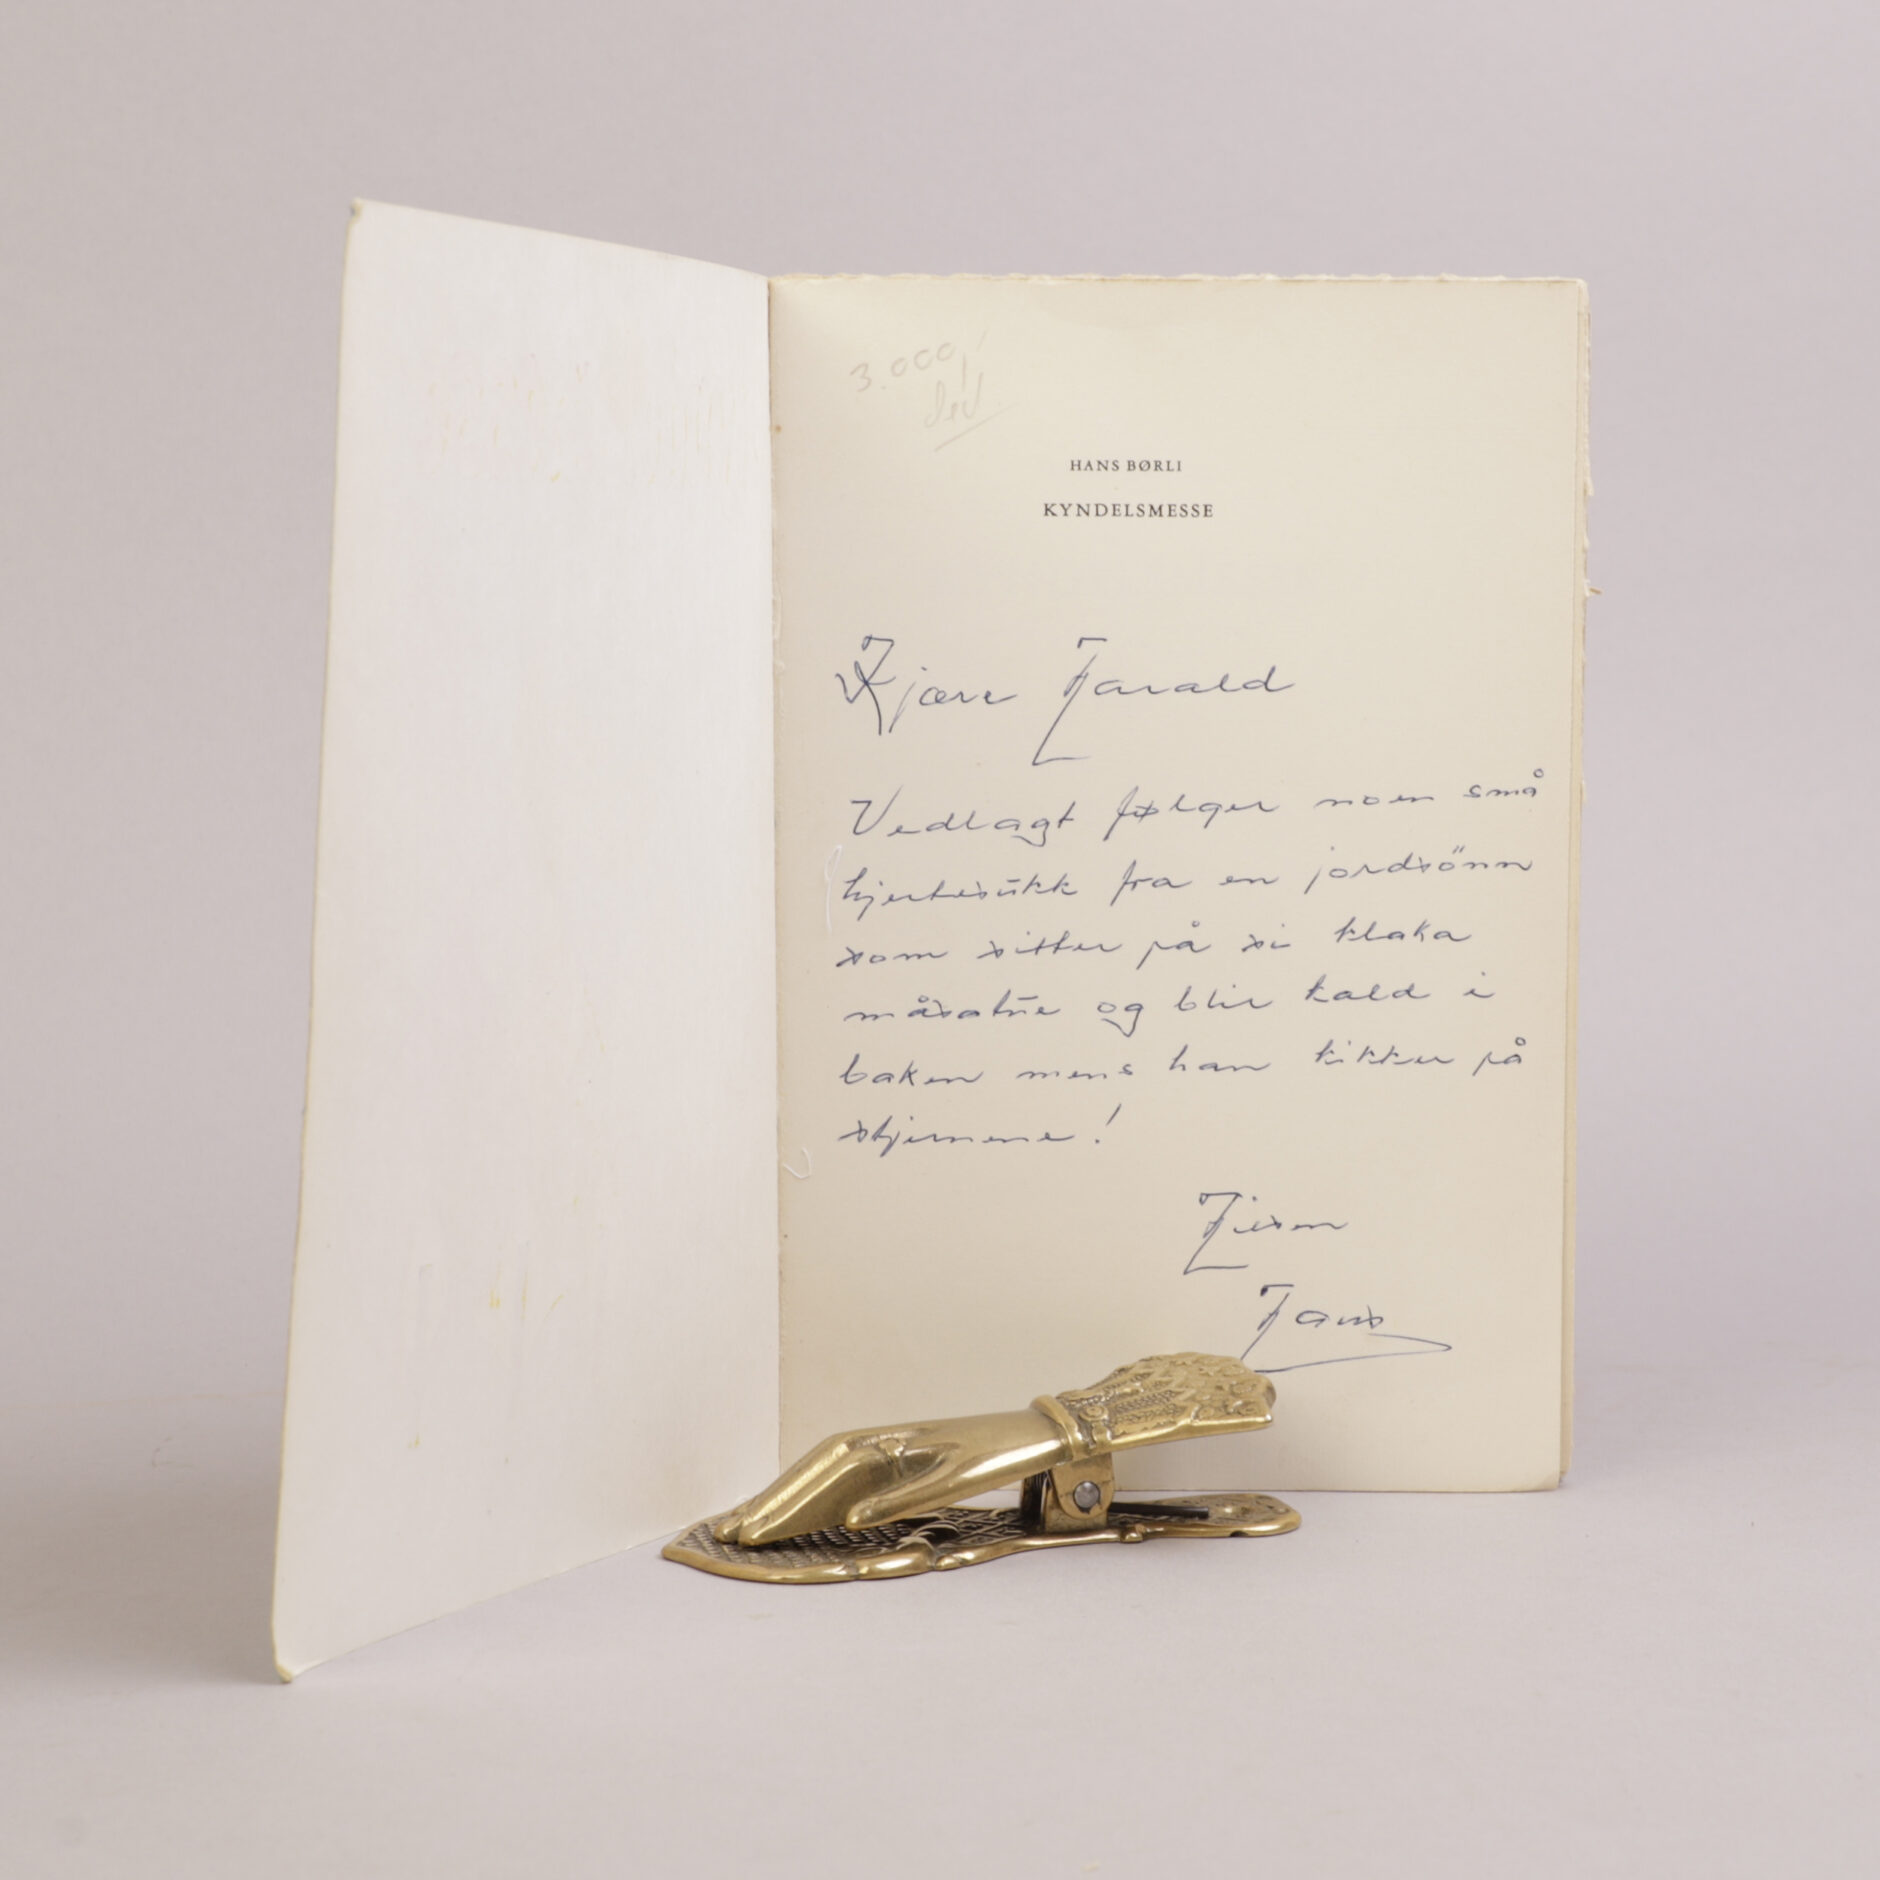 3.000,-
HANS BØRLI
KYNDELSMESSE
Kjære Harald
Vedlagt følger noen små
hjertesukk fra en jordsönn
som sitter på si klaka
måsatue og blir kald i
baken mens han kikker på
stjernene!
Hilsen
Hans